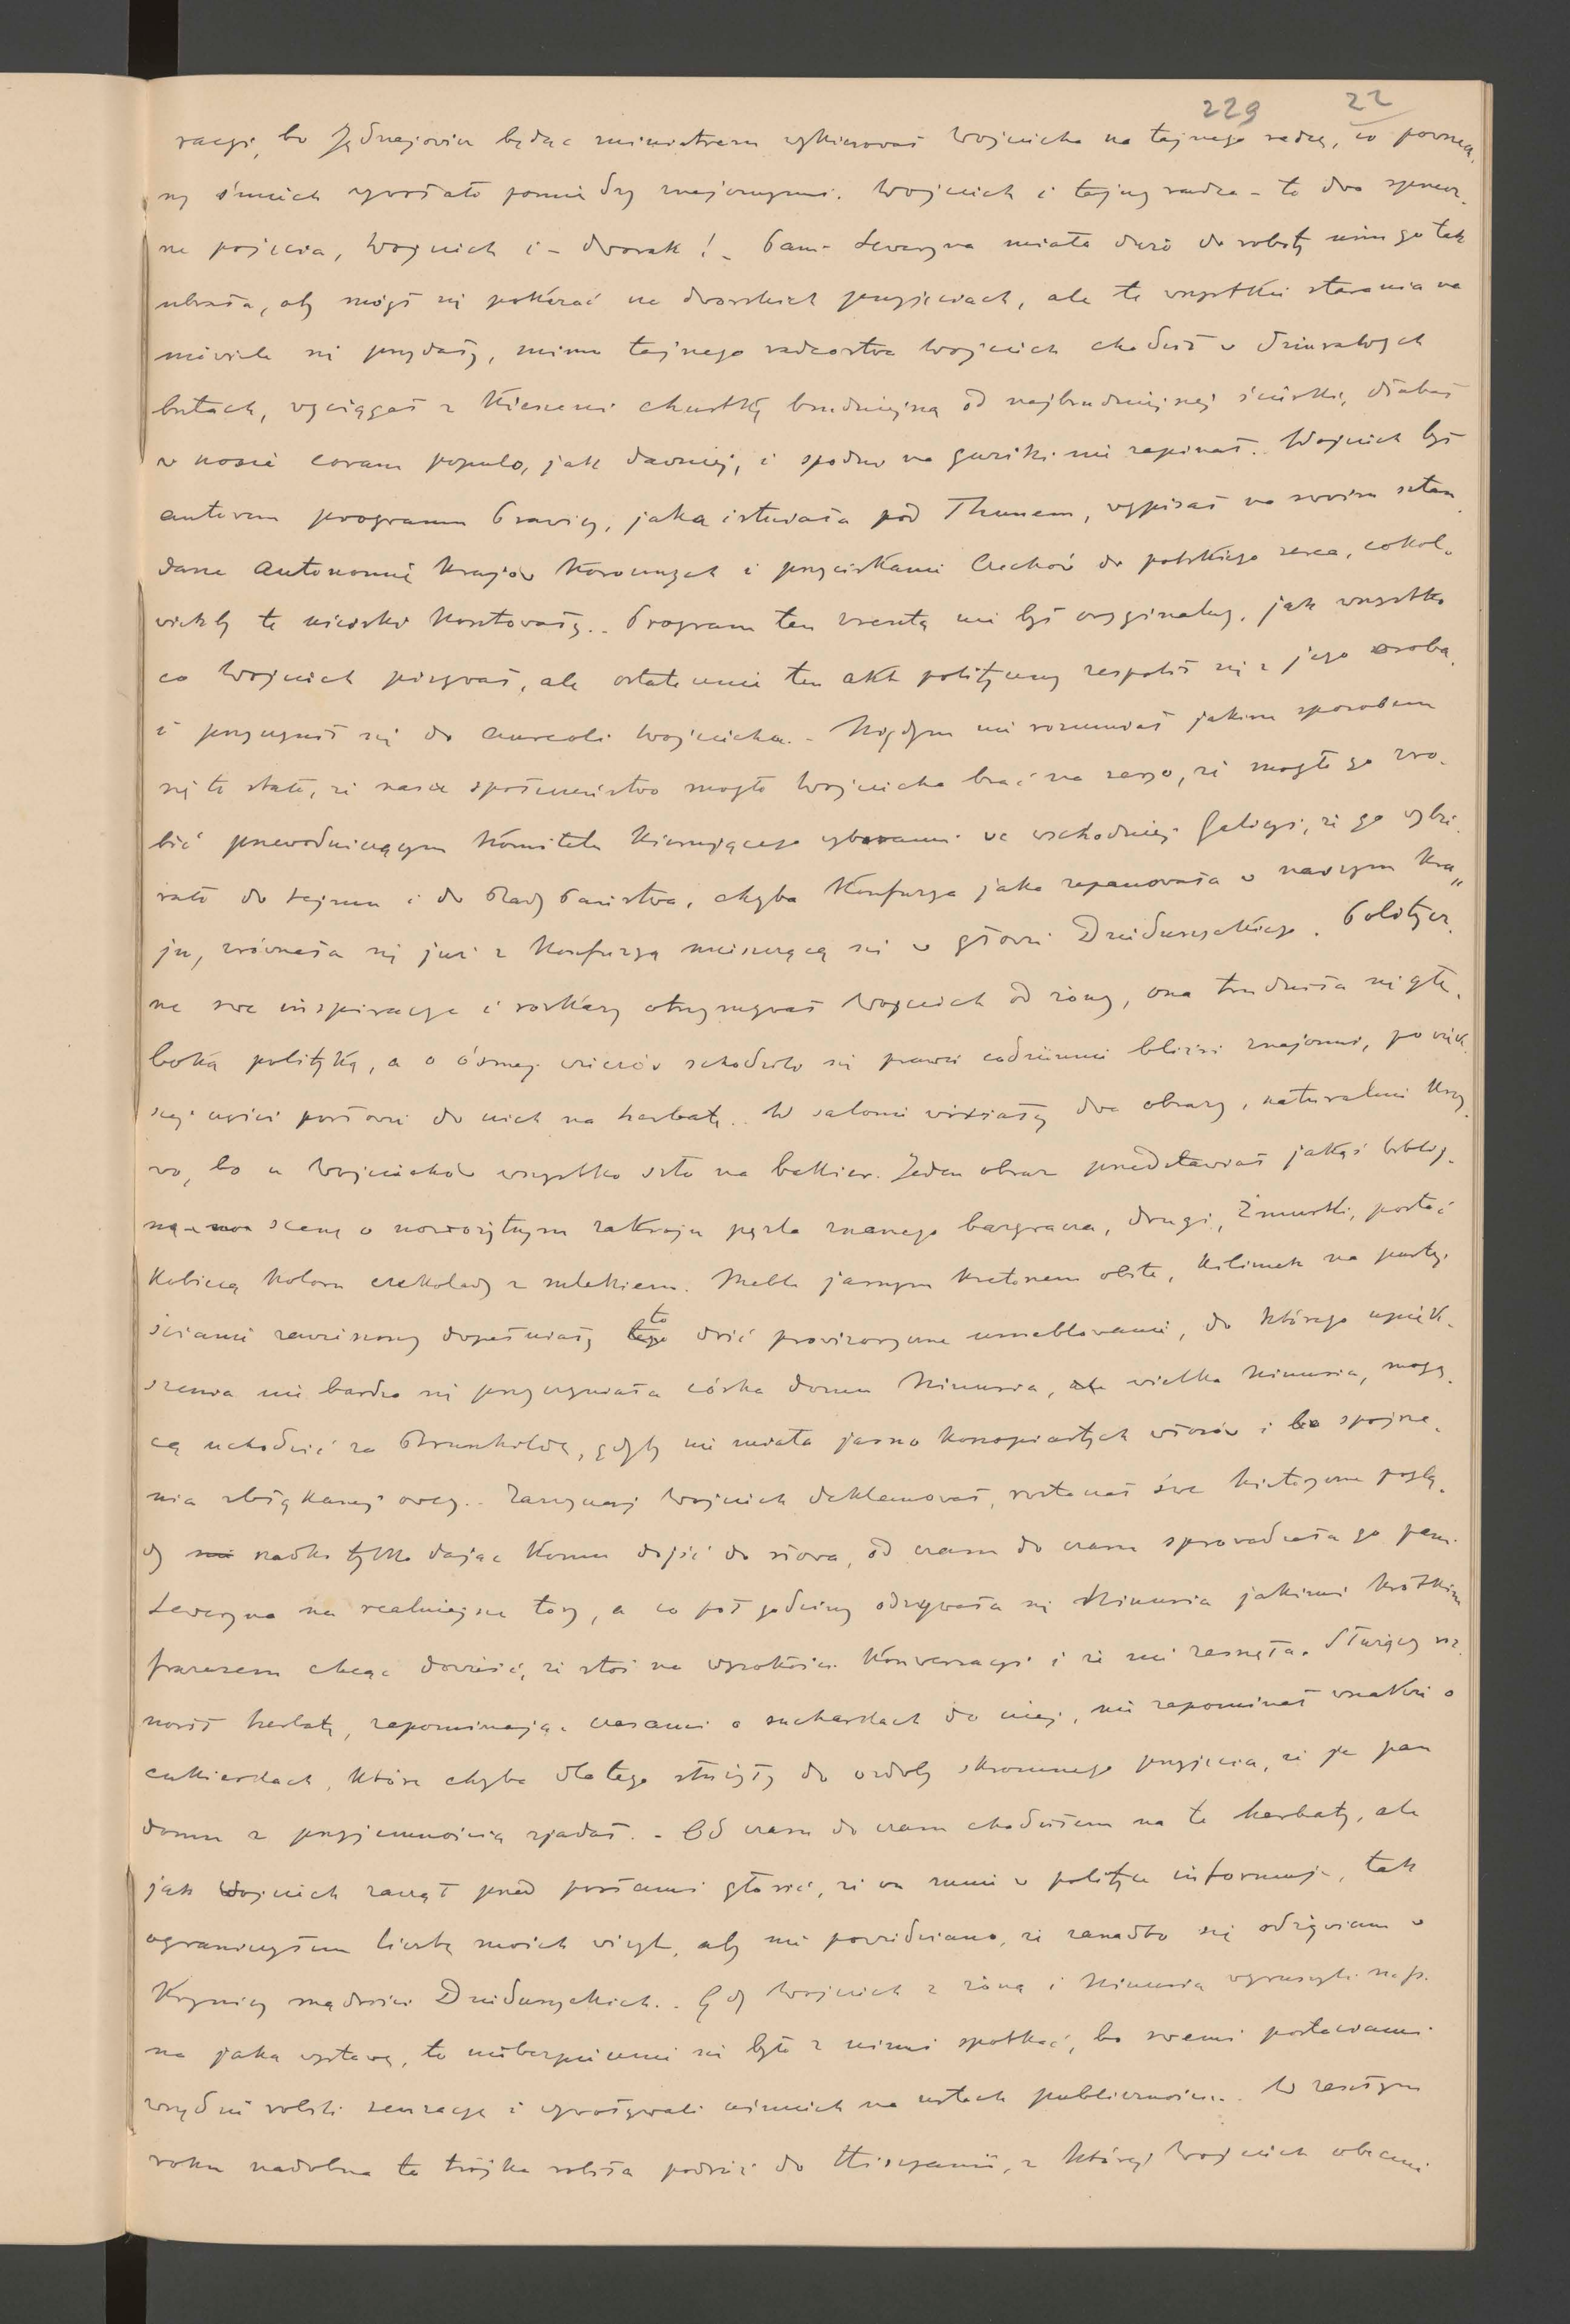 229 22
racyi, bo Jędrzejowicz będąc ministrem wykierował Wojciecha na tajnego radcę, co powszech-
ny śmiech wywołało pomiędzy znajomymi. Wojciech i tajny radca – to dwa sprzecz-
ne pojęcia, Wojciech i – dworak! – Pani Seweryna miała dużo do roboty nim go tak
ubrała, aby mógł się pokazać na dworskich przyjęciach, ale te wszystkie starania na
niewiele się przydały, mimo tajnego radcostwa Wojciech chodził w dziurawych
butach, wyciągał z kieszeni chustkę brudniejszą od najbrudniejszej ścierki, dłubał
w nosie coram populo, jak dawniej, i spodni na guziki nie zapinał. Wojciech był
autorem programu Prawicy, jaka istniała pod Thunem, wypisał na swoim sztan-
darze autonomię krajów koronnych i przyciskanie Czechów do polskiego serca, cokol-
wiekby te uściski kosztowały.. Program ten zresztą nie był oryginalny, jak wszystko
co Wojciech pisywał, ale ostatecznie ten akt polityczny zespolił się z jego osobą
i przyczynił się do aureoli Wojciecha. – Nigdym nie rozumiał jakim sposobem
się to stało, że nasze społeczeństwo mogło Wojciecha brać na seryo, że mogło go zro-
bić przewodniczącym Komitetu kierującego wyborami we wschodniej Galicyi, że go wybie-
rało do sejmu i do Rady Państwa, chyba konfuzya jaka zapanowała w naszym kra-
ju, zrównała się już z konfuzyą mieszczącą się w głowie Dzieduszyckiego. Politycz-
ne swe inspiracye i rozkazy otrzymywał Wojciech od żony, ona trudniła się głę-
boką polityką, a o ósmej wieczór schodzili się prawie codziennie bliżsi znajomi, po więk-
szej części posłowie do nich na herbatę.. W salonie wisiały dwa obrazy, naturalnie krzy-
wo, bo u Wojciechów wszystko szło na bakier. Jeden obraz przedstawiał jakąś biblij-
ną scenę o nowożytnym zakroju pęzla znanego bazgracza, drugi, Żmurki, postać
kobiecą koloru czekolady z mlekiem. Meble jasnym kretonem obite, kilimek na pustej
ścianie zawieszony dopełniały to dość prowizoryczne umeblowanie, do którego upięk-
szenia nie bardzo się przyczyniała córka domu Nimusia, wielka Nimusia, mogą-
cą uchodzić za Brunhildę, gdyby nie miała jasno konopiastych włosów i spojrze-
nia zbłąkanej owcy.. Zazwyczaj Wojciech deklamował, roztaczał swe historyczne poglą-
dy rzadko tylko dając komu dojść do słowa, od czasu do czasu sprowadzała go pani
Seweryna na realniejsze tory, a co pół godziny odzywała się Nimusia jakimś krótkim
frazesem chcąc dowieść, że stoi na wysokości konwersacyi i że nie zasnęła. Służący roz-
nosił herbatę, zapominając czasami o sucharkach do niej, nie zapominał wszakże o
cukierkach, które chyba dlatego służyły do ozdoby skromnego przyjęcia, że je pan
domu z przyjemnością zjadał. – Od czasu do czasu chodziłem na te herbaty, ale
jak Wojciech zaczął przed posłami głosić, że on mnie w polityce informuje, tak
ograniczyłem liczbę moich wizyt, aby nie powiedziano, że zanadto się odżywiam w
krynicy mądrości Dzieduszyckich.. Gdy Wojciech z żoną i Nimusią wyruszyli np.
na jaką wystawę, to niebezpiecznie się było z nimi spotkać, bo swemi postaciami
wszędzie robili sensacyę i wywoływali uśmiech na ustach publiczności.. W zeszłym
roku nadobna ta trójka robiła podróż do Hiszpanii, z której Wojciech obecnie